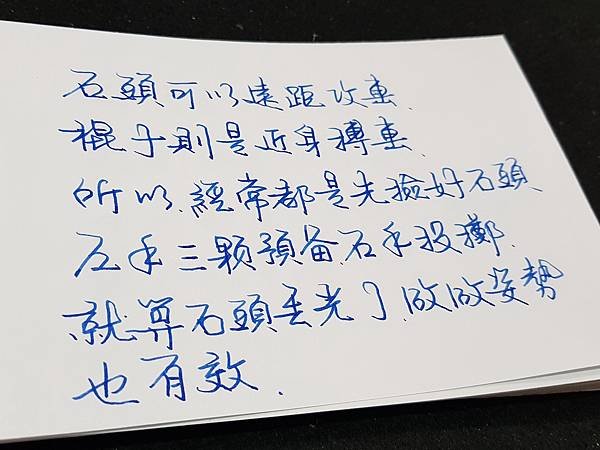 石頭可以遠距攻擊.
棍子則是近身搏擊.
所以.經常都是先撿好石頭.
左手三顆預備.右手投擲.
就算石頭丟光了.做做姿勢
也有效.